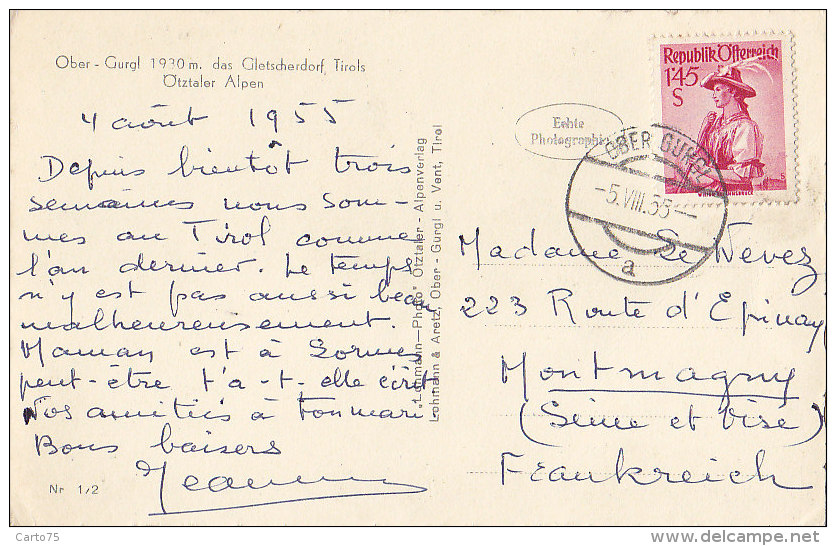 Ober - Gurgl 1930 m. das Gletscherdorf Tirols
Ötztaler Alpen
4 août 1955
Depuis bientôt trois
semaines nous som-
mes au Tirol comme
l'an dernier. Le temps
n'y est pas aussi beau
malheureusement.
Maman est à
peut-être t'a-t-elle écrit
Nos amitiés à ton mari
Bons baisers
Nr 1/2
"Lohmann—Photo" Ötztaler - Alpenverlag
Lohmann & Aretz, Ober - Gurgl u. Vent, Tirol
Echte
Photographie
Republik Österreich
1'45
S
OBER GURGL
-5.VIII.55-
a
Madame Le Nevez
223 Route d'Epinay
Montmagny
(Seine et Oise)
Frankreich
© Carto75
delcampe.net